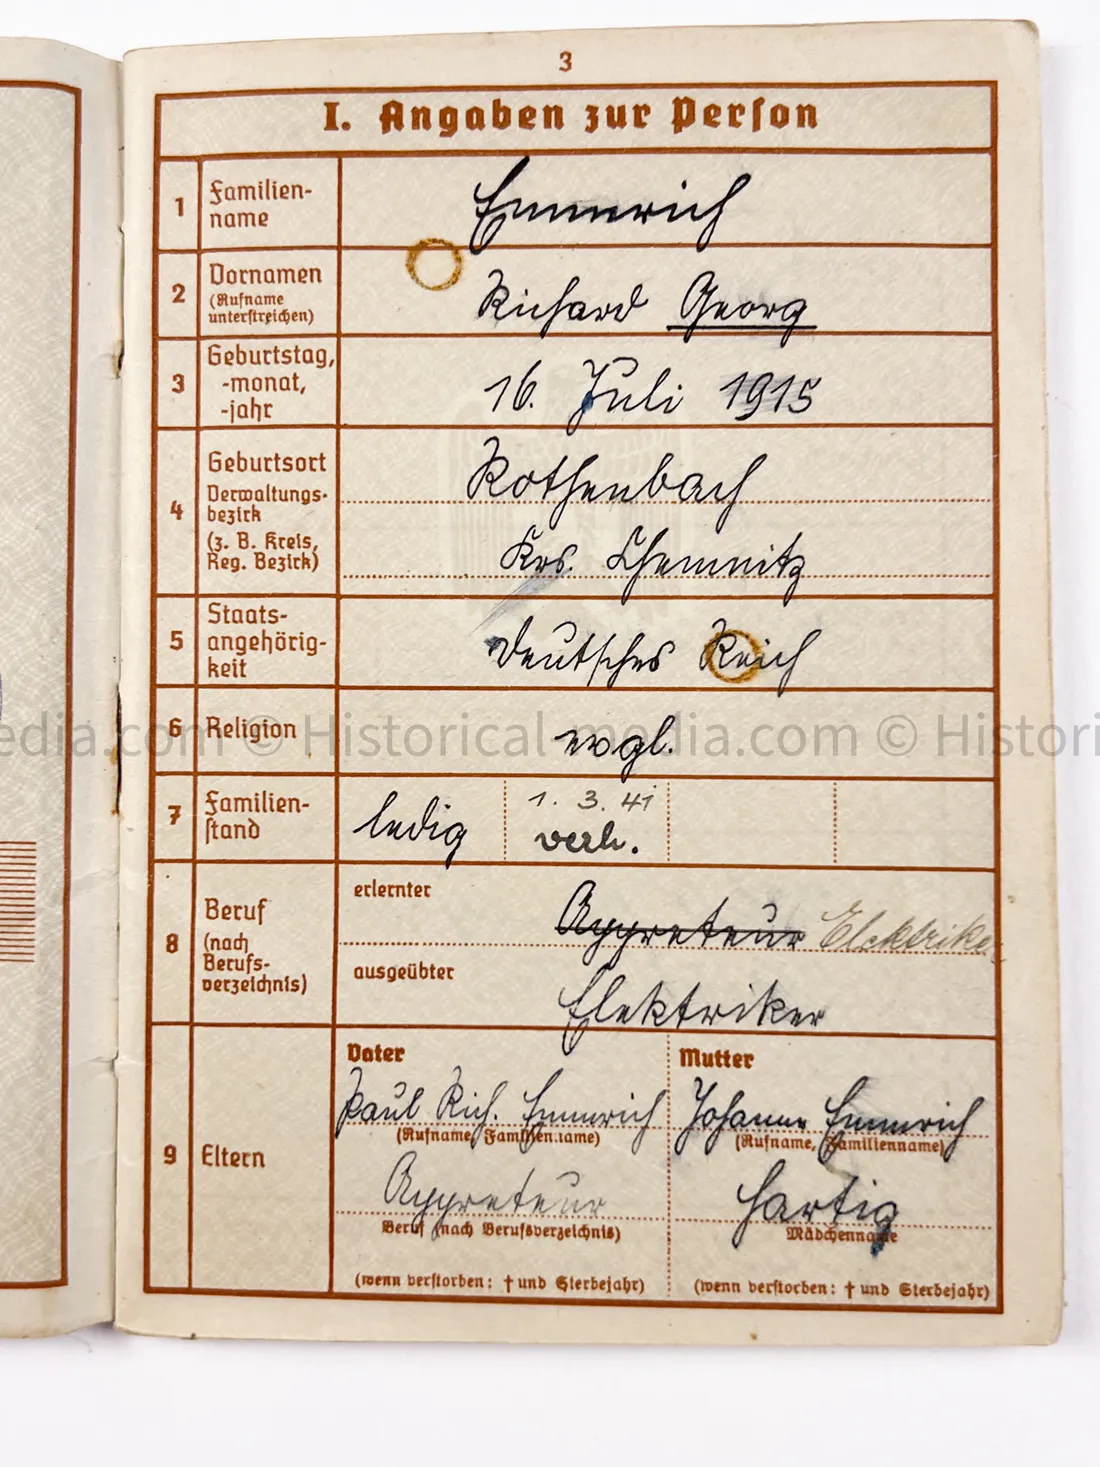 3
I. Angaben zur Person
1 Familien-
name
Emmrich
2 Vornamen
(Rufname
unterstreichen)
Richard Georg
3 Geburtstag,
-monat,
-jahr
16. Juli 1915
4 Geburtsort
Verwaltungs-
bezirk
(z. B. Kreis,
Reg. Bezirk)
Rothenbach
Krs. Chemnitz
5 Staats-
angehörig-
keit
Deutsches Reich
6 Religion
evgl.
7 Familien-
stand
ledig
1. 3. 41
verh.
8 Beruf
(nach
Berufs-
verzeichnis)
erlernter
Appreteur Elektriker
ausgeübter
Elektriker
9 Eltern
Vater
Paul Rich. Emmrich
(Rufname, Familienname)
Appreteur
Beruf (nach Berufsverzeichnis)
(wenn verstorben: † und Sterbejahr)
Mutter
Johanne Emmrich
(Rufname, Familienname)
Hartig
Mädchenname
(wenn verstorben: † und Sterbejahr)
edia.com © Historical-media.com © Histori